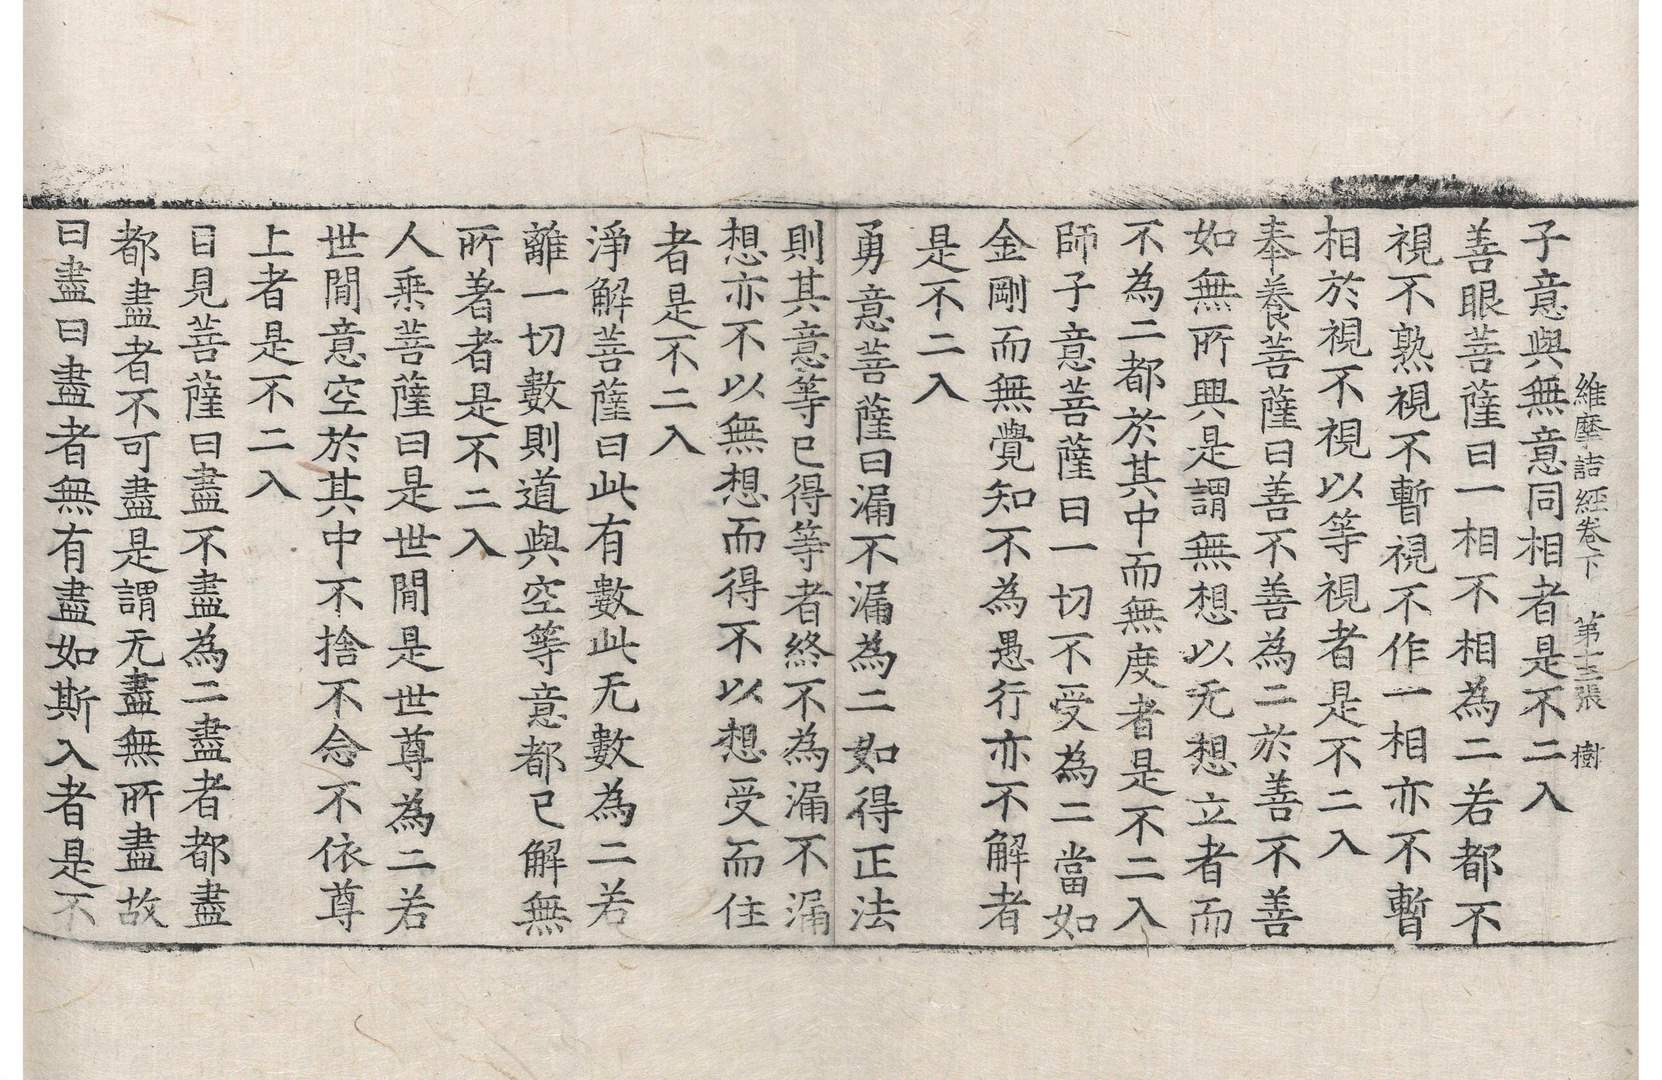 維摩詰經卷下　第十三張　樹
子意與無意同相者是不二入
善眼菩薩曰一相不相為二若都不
視不熟視不暫視不作一相亦不暫
相於視不視以等視者是不二入
奉養菩薩曰善不善為二於善不善
如無所興是謂無想以无想立者而
不為二都於其中而無度者是不二入
師子意菩薩曰一切不受為二當如
金剛而無覺知不為愚行亦不解者
是不二入
勇意菩薩曰漏不漏為二如得正法
則其意等已得等者終不為漏不漏
想亦不以無想而得不以想受而住
者是不二入
淨解菩薩曰此有數此无數為二若
離一切數則道與空等意都已解無
所著者是不二入
人乘菩薩曰是世間是世尊為二若
世間意空於其中不捨不念不依尊
上者是不二入
目見菩薩曰盡不盡為二盡者都盡
都盡者不可盡是謂无盡無所盡故
曰盡曰盡者無有盡如斯入者是不